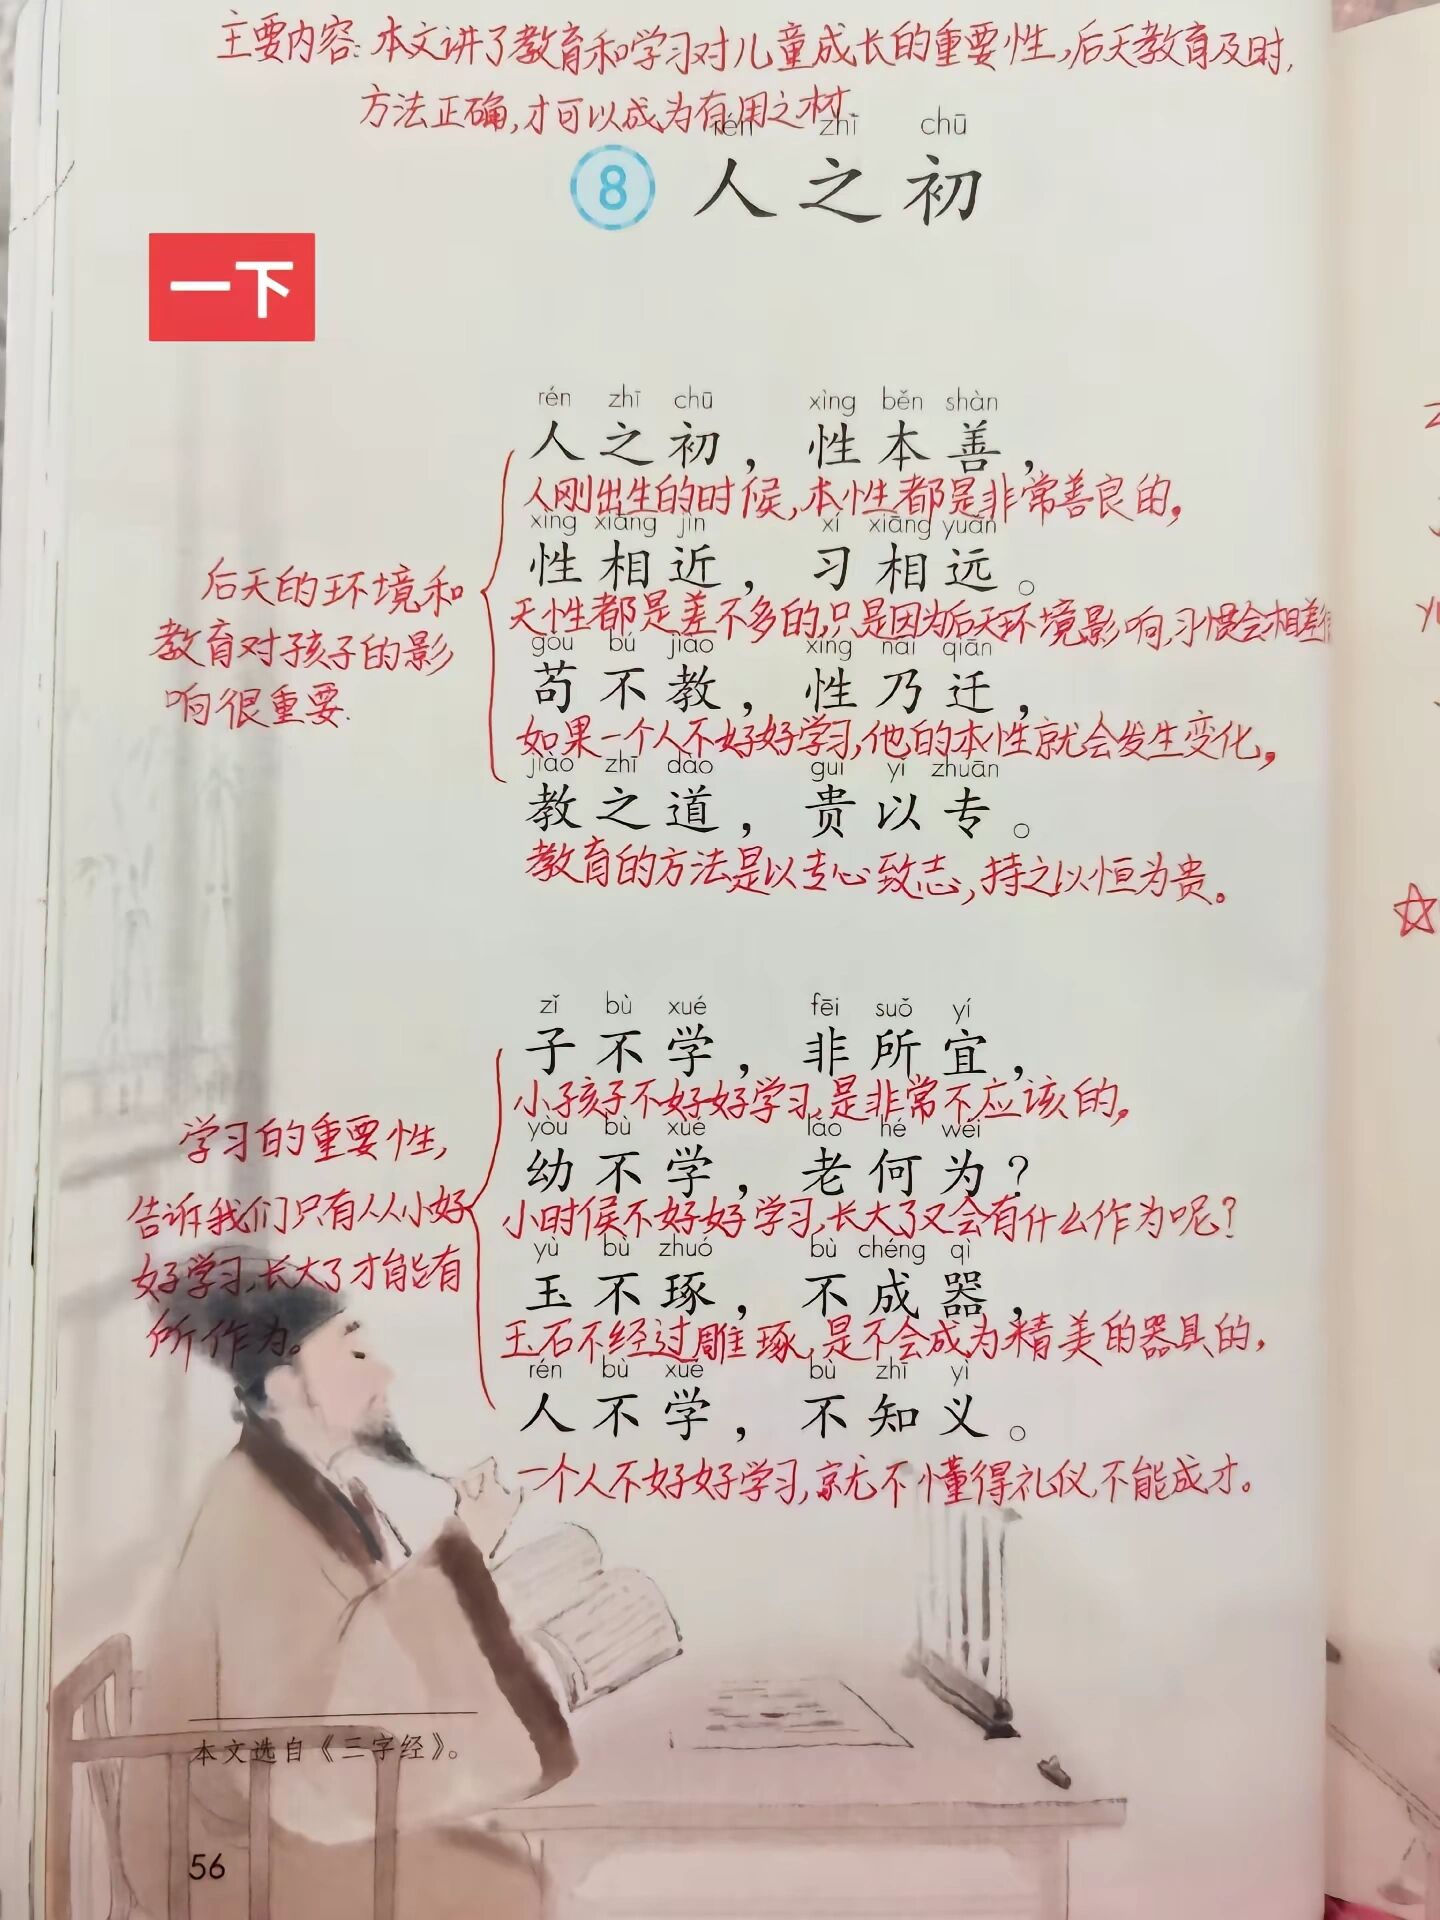 主要内容:本文讲了教育和学习对儿童成长的重要性,后天教育及时,
方法正确,才可以成为有用之材.
rén zhī chū
8 人之初
一下
rén zhī chū xìng běn shàn
人之初，性本善，
人刚出生的时候,本性都是非常善良的,
xìng xiāng jìn xí xiāng yuǎn
性相近，习相远。
天性都是差不多的,只是因为后天环境影响,习惯会相差
gǒu bú jiào xìng nǎi qiān
苟不教，性乃迁，
如果一个人不好好学习,他的本性就会发生变化,
jiào zhī dào guì yǐ zhuān
教之道，贵以专。
教育的方法是以专心致志,持之以恒为贵。
后天的环境和
教育对孩子的影
响很重要.
zǐ bù xué fēi suǒ yí
子不学，非所宜，
小孩子不好好学习,是非常不应该的,
yòu bù xué lǎo hé wéi
幼不学，老何为？
小时候不好好学习,长大了又会有什么作为呢?
yù bù zhuó bù chéng qì
玉不琢，不成器，
玉石不经过雕琢,是不会成为精美的器具的,
rén bù xué bù zhī yì
人不学，不知义。
一个人不好好学习,就不懂得礼仪,不能成才。
学习的重要性,
告诉我们只有从小好
好学习,长大了才能有
所作为。
本文选自《三字经》。
56